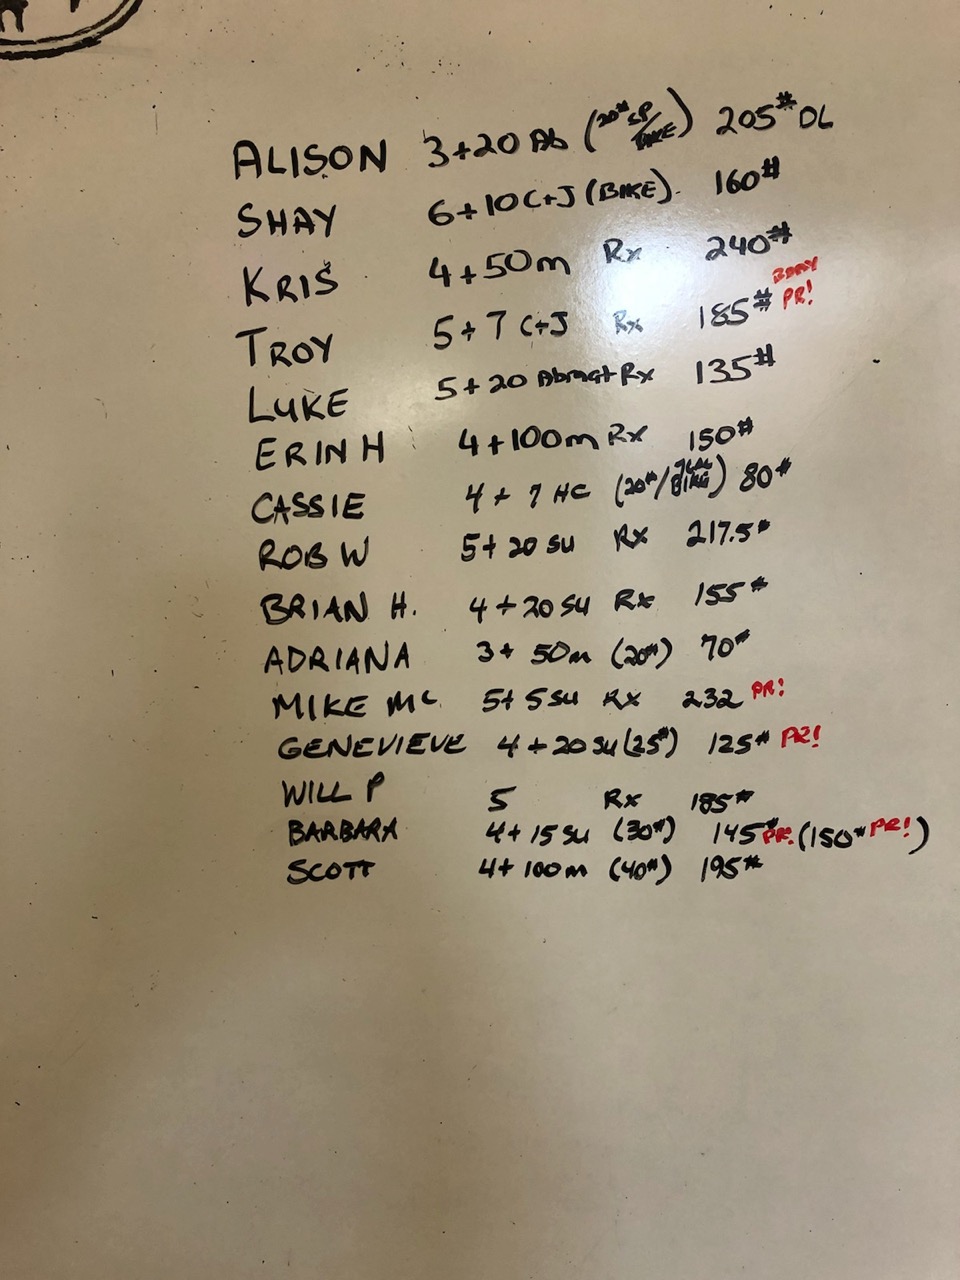 ALISON 3+20 Ab (20# SP/BIKE) 205# DL
SHAY 6+10 C+J (BIKE) 160#
KRIS 4+50m Rx 240#
TROY 5+7 C+J Rx 185# BDAY PR!
LUKE 5+20 Abmat Rx 135#
ERIN H 4+100m Rx 150#
CASSIE 4+7 HC (20#/BIKE) 80#
ROB W 5+20 SU Rx 217.5#
BRIAN H. 4+20 SU Rx 155#
ADRIANA 3+50m (20#) 70#
MIKE MC 5+5 SU Rx 232 PR!
GENEVIEVE 4+20 SU (25#) 125# PR!
WILL P 5 Rx 185#
BARBARA 4+15 SU (30#) 145# PR! (150# PR!)
SCOTT 4+100m (40#) 195#